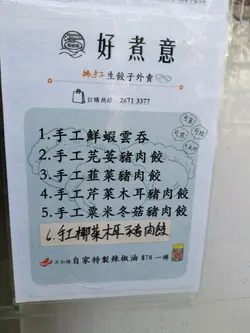 好煮意
手工生餃子外賣
訂購熱線: 2671 3377
1.手工鮮蝦雲吞
2.手工芫荽豬肉餃
3.手工韮菜豬肉餃
4.手工芹菜木耳豬肉餃
5.手工粟米冬菇豬肉餃
6.紅椰菜木耳豬肉餃
自家特製辣椒油 $78 一樽